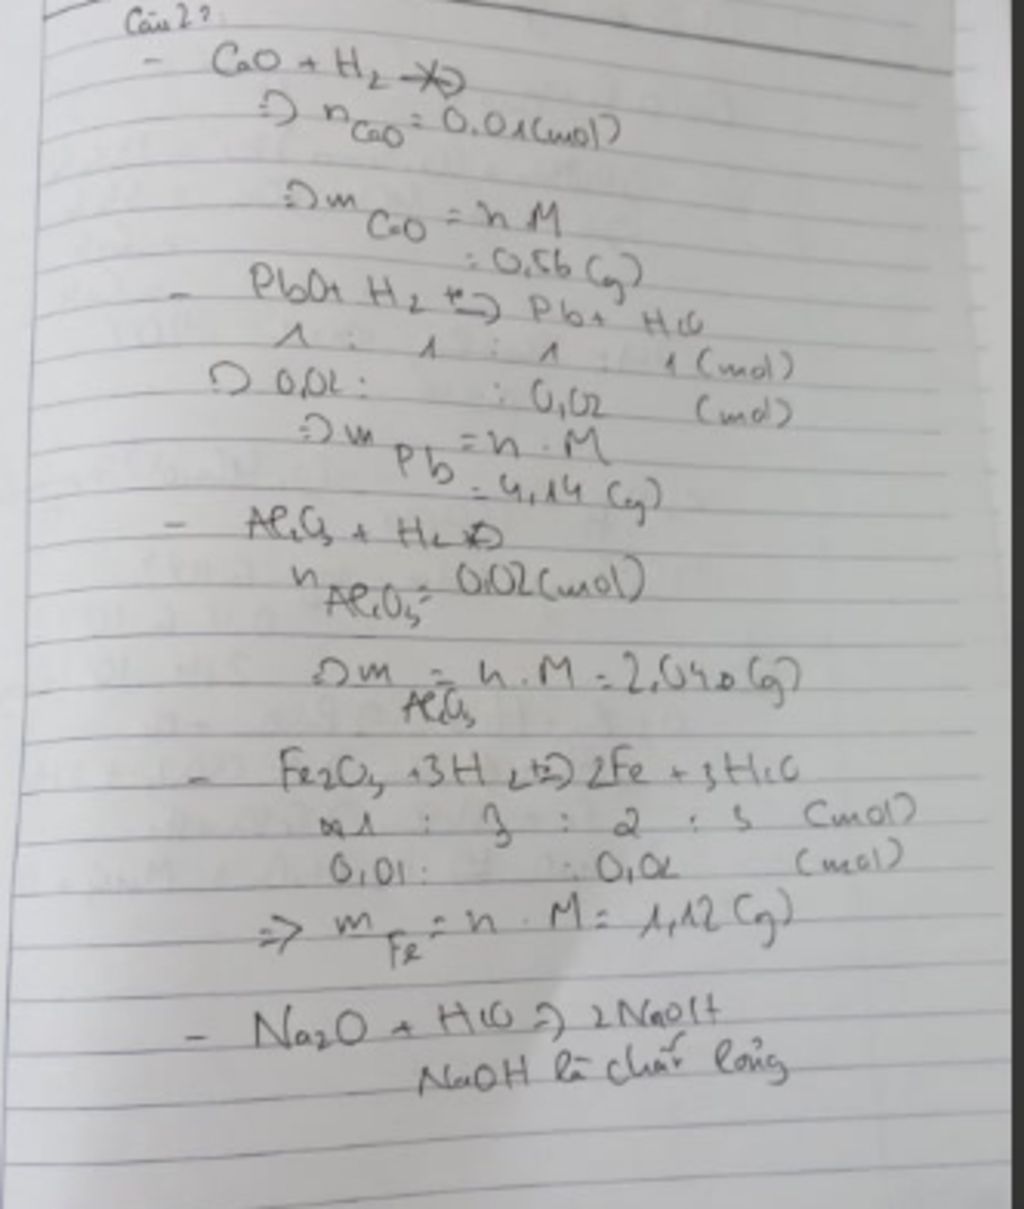 Câu 2:
- CaO + H2 -X->
=> nCaO = 0.01(mol)
=> mCaO = n M
= 0,56 (g)
- PbO + H2 t°=> Pb + H2O
1 : 1 : 1 1 (mol)
=> 0,02 : : 0,02 (mol)
=> mPb = n . M
= 4,14 (g)
- Al2O3 + H2 -X->
nAl2O3 = 0.02 (mol)
=> mAl2O3 = n . M = 2,040 (g)
- Fe2O3 + 3H2 t°=> 2Fe + 3H2O
1 : 3 : 2 : 3 (mol)
0,01 : : 0,02 (mol)
=> mFe = n . M = 1,12 (g)
- Na2O + H2O => 2NaOH
NaOH là chất lỏng